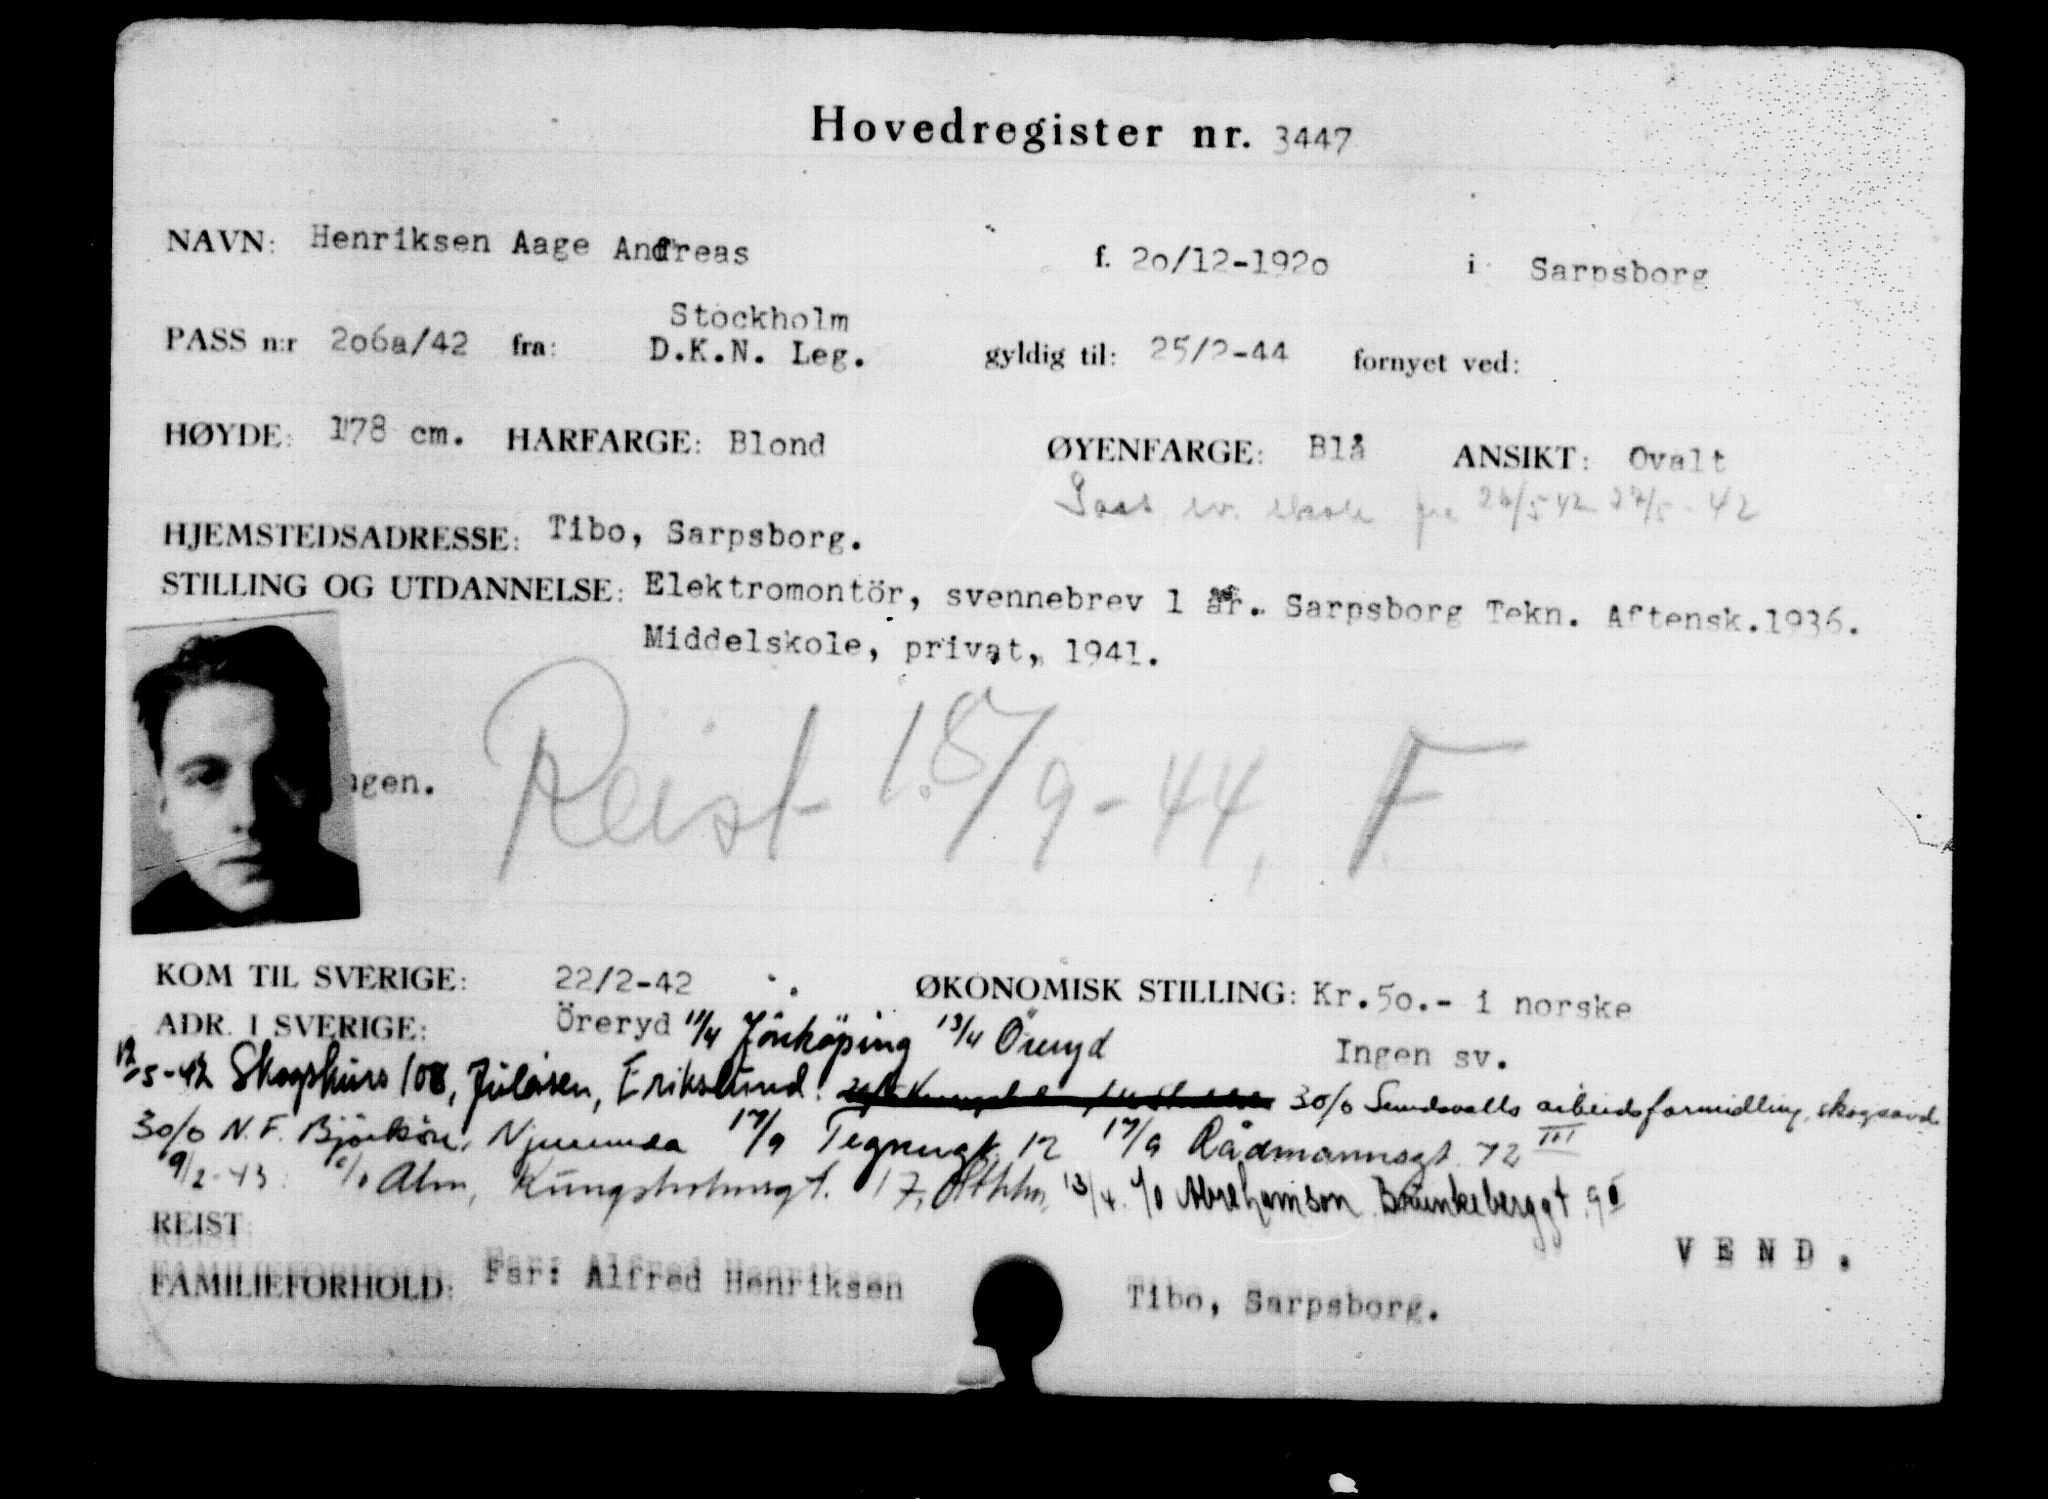 Hovedregister nr. 3447
NAVN: Henriksen Aage Andreas f. 2o/12-192o i Sarpsborg
Stockholm
PASS n:r 2o6a/42 fra: D.K.N. Leg. gyldig til: 25/2-44 fornyet ved:
HØYDE: 178 cm. HARFARGE: Blond ØYENFARGE: Blå ANSIKT: Ovalt
26/5 42 27/5-42
HJEMSTEDSADRESSE: Tibo, Sarpsborg.
STILLING OG UTDANNELSE: Elektromontör, svennebrev 1 år. Sarpsborg Tekn. Aftensk.1936.
Middelskole, privat, 1941.
Reist 18/9-44, F.
ngen.
KOM TIL SVERIGE: 22/2-42 ØKONOMISK STILLING: Kr.5o.- i norske
ADR. I SVERIGE: Öreryd 11/4 Jönköping 13/4 Öreryd Ingen sv.
12/5-42 Skogskurs 108, Julåsen, Erikslund. 30/6 Sundsvalls arbeidsformidling, skogsavd.
30/6 N.F. Björkön, Njurunda 17/9 Tegnergt. 12 17/9 Rådmannsgt. 72 III
9/2-43: c/o Alm, Kungsholmsgt. 17, Sthlm, 13/4. c/o Abrahamson Brunkeberggt. 9 II
REIST
VEND.
FAMILIEFORHOLD: Far: Alfred Henriksen Tibo, Sarpsborg.